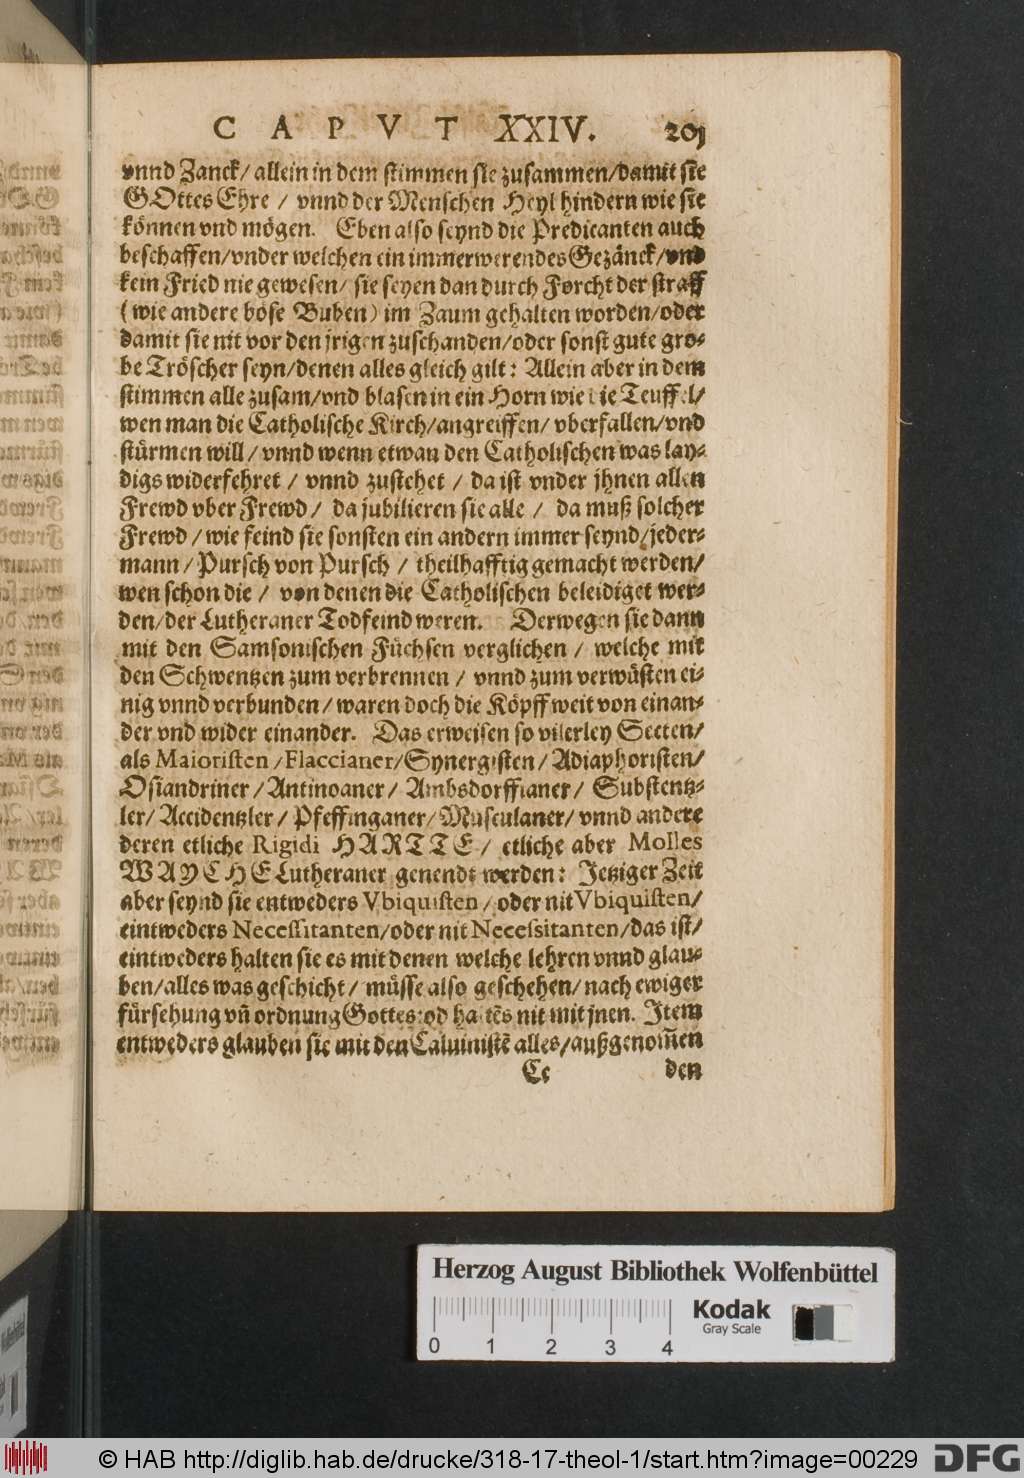 CAPVT XXIV. 201
vnnd Zanck/ allein in dem stimmen sie zusammen/damit sie
GOttes Ehre / vnnd der Menschen Heyl hindern wie sie
können vnd mögen. Eben also seynd die Predicanten auch
beschaffen/vnder welchen ein immerwerendes Gezänck/vnd
kein Fried nie gewesen/ sie seyen dan durch Forcht der straff
(wie andere böse Buben) im Zaum gehalten worden/oder
damit sie nit vor den jrigen zuschanden/oder sonst gute gro-
be Tröscher seyn/denen alles gleich gilt: Allein aber in dem
stimmen alle zusam/vnd blasen in ein Horn wie die Teuffel/
wen man die Catholische Kirch/angreiffen/ vberfallen/vnd
stürmen will/ vnnd wenn etwan den Catholischen was lay-
digs widerfehret / vnnd zustehet / da ist vnder jhnen allen
Frewd vber Frewd / da jubilieren sie alle / da muß solcher
Frewd / wie feind sie sonsten ein andern immer seynd/jeder-
mann / Pursch von Pursch / theilhafftig gemacht werden/
wen schon die / von denen die Catholischen beleidiget wer-
den/der Lutheraner Todfeind weren. Derwegen sie dann
mit den Samsonischen Füchsen verglichen / welche mit
den Schwentzen zum verbrennen / vnnd zum verwüsten ei-
nig vnnd verbunden/ waren doch die Köpff weit von einan-
der vnd wider einander. Das erweisen so vilerley Secten/
als Maioristen/Flaccianer/Synergisten/ Adiaphoristen/
Osiandriner/Antinoaner/ Ambsdorffianer/ Substentz-
ler/ Accidentzler/ Pfeffinganer/ Musculaner/ vnnd andere
deren etliche Rigidi HARTTE/ etliche aber Molles
WAYCHE Lutheraner genendt werden: Jetziger Zeit
aber seynd sie entweders Vbiquisten/ oder nit Vbiquisten/
eintweders Necessitanten/oder nit Necessitanten/das ist/
eintweders halten sie es mit denen welche lehren vnnd glau-
ben/alles was geschicht/ müsse also geschehen/ nach ewiger
fürsehung vñ ordnung Gottes:od haltẽs nit mit jnen. Item
entweders glauben sie mit den Caluinistẽ alles/außgenom̃en
Cc den
Herzog August Bibliothek Wolfenbüttel
0 1 2 3 4
Kodak
Gray Scale
© HAB http://diglib.hab.de/drucke/318-17-theol-1/start.htm?image=00229
DFG